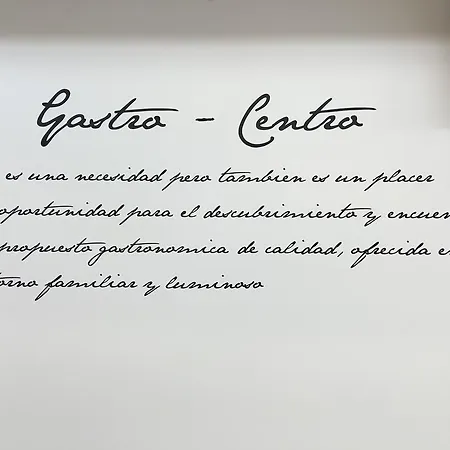 Gastro - Centro
es una necesidad pero tambien es un placer
oportunidad para el descubrimiento y encuen
propuesto gastronomica de calidad, ofrecida e
torno familiar y luminoso